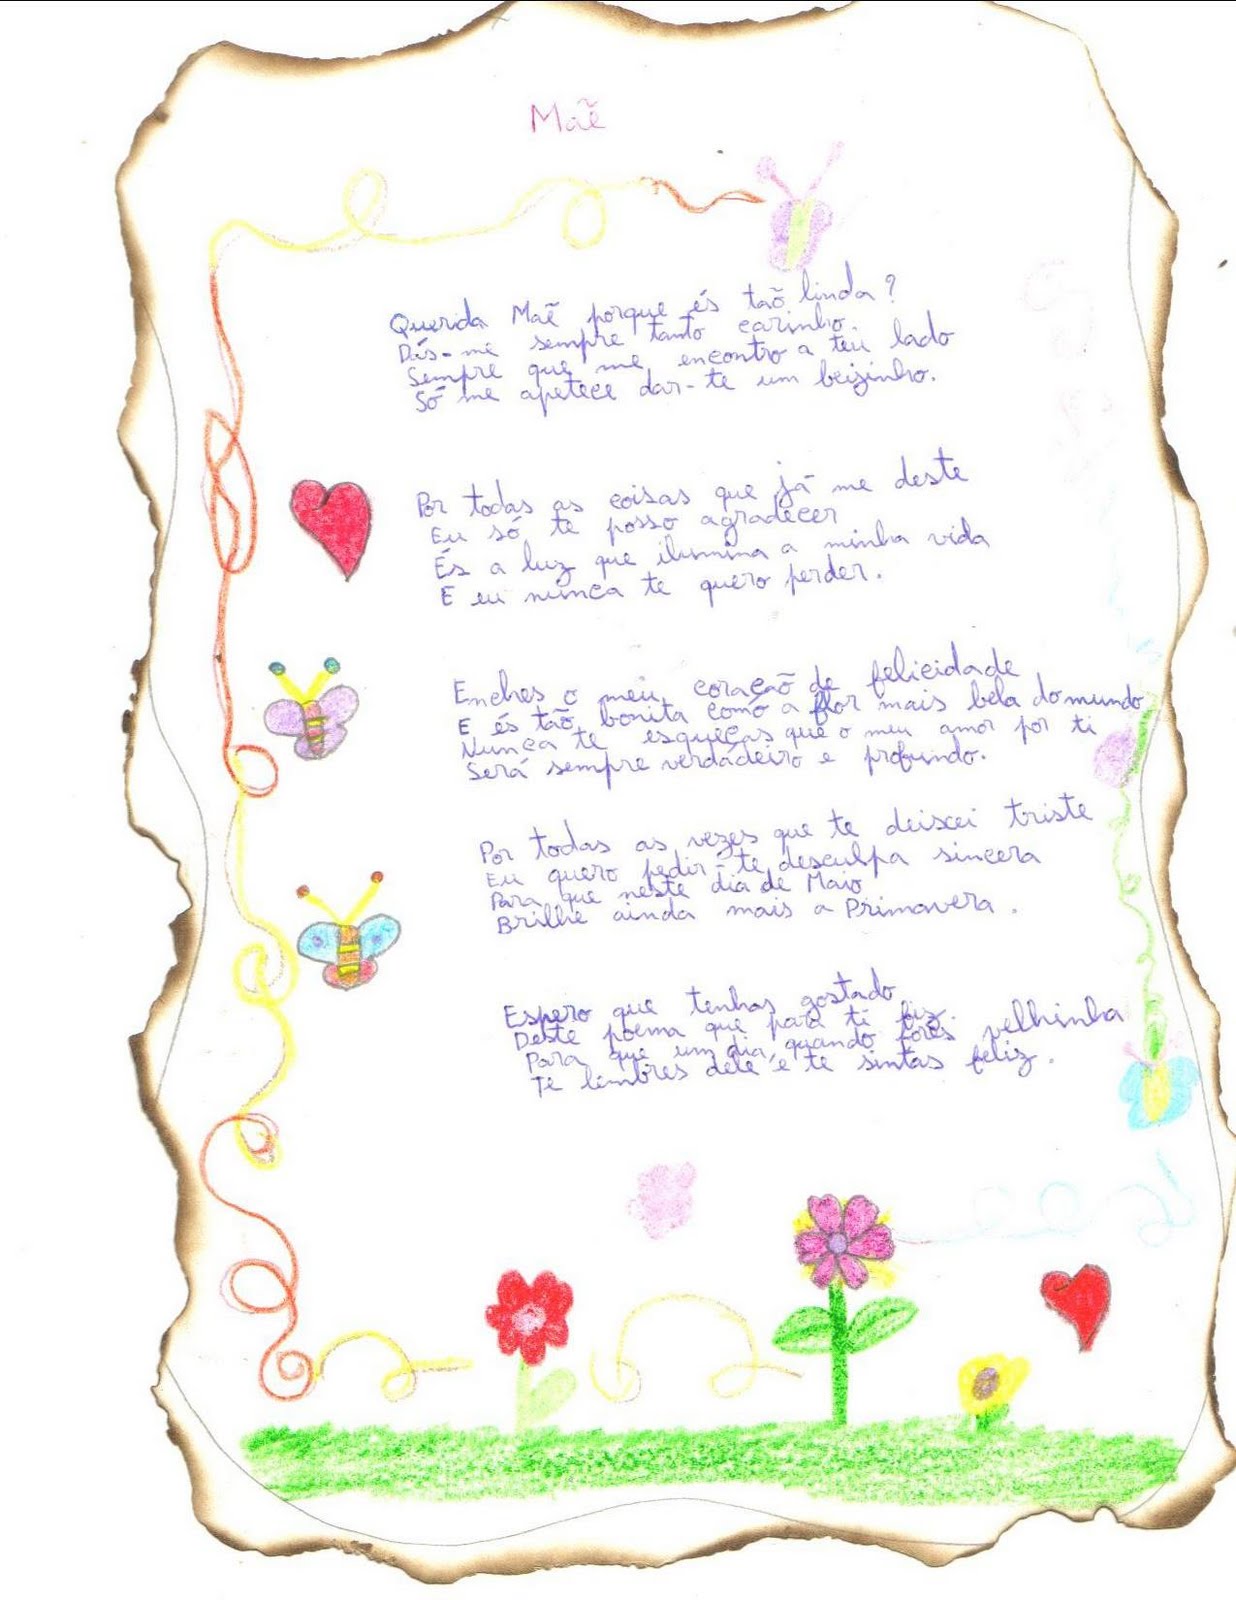 Maẽ
Querida Maẽ porque és taõ linda?
Dás-me sempre tanto carinho.
Sempre que me encontro a teu lado
Só me apetece dar-te um beizinho.
Por todas as coisas que já me deste
Eu só te posso agradecer
És a luz que ilumina a minha vida
E eu nunca te quero perder.
Enches o meu coraçaõ de felicidade
E és tão bonita como a flor mais bela do mundo
Nunca te esqueças que o meu amor por ti
Será sempre verdadeiro e profundo.
Por todas as vezes que te deixei triste
Eu quero pedir-te desculpa sincera
Para que neste dia de Maio
Brilhe ainda mais a Primavera.
Espero que tenhas gostado
Deste poema que para ti fiz.
Para que um dia, quando fores velhinha
Te lembres dele e te sintas feliz.